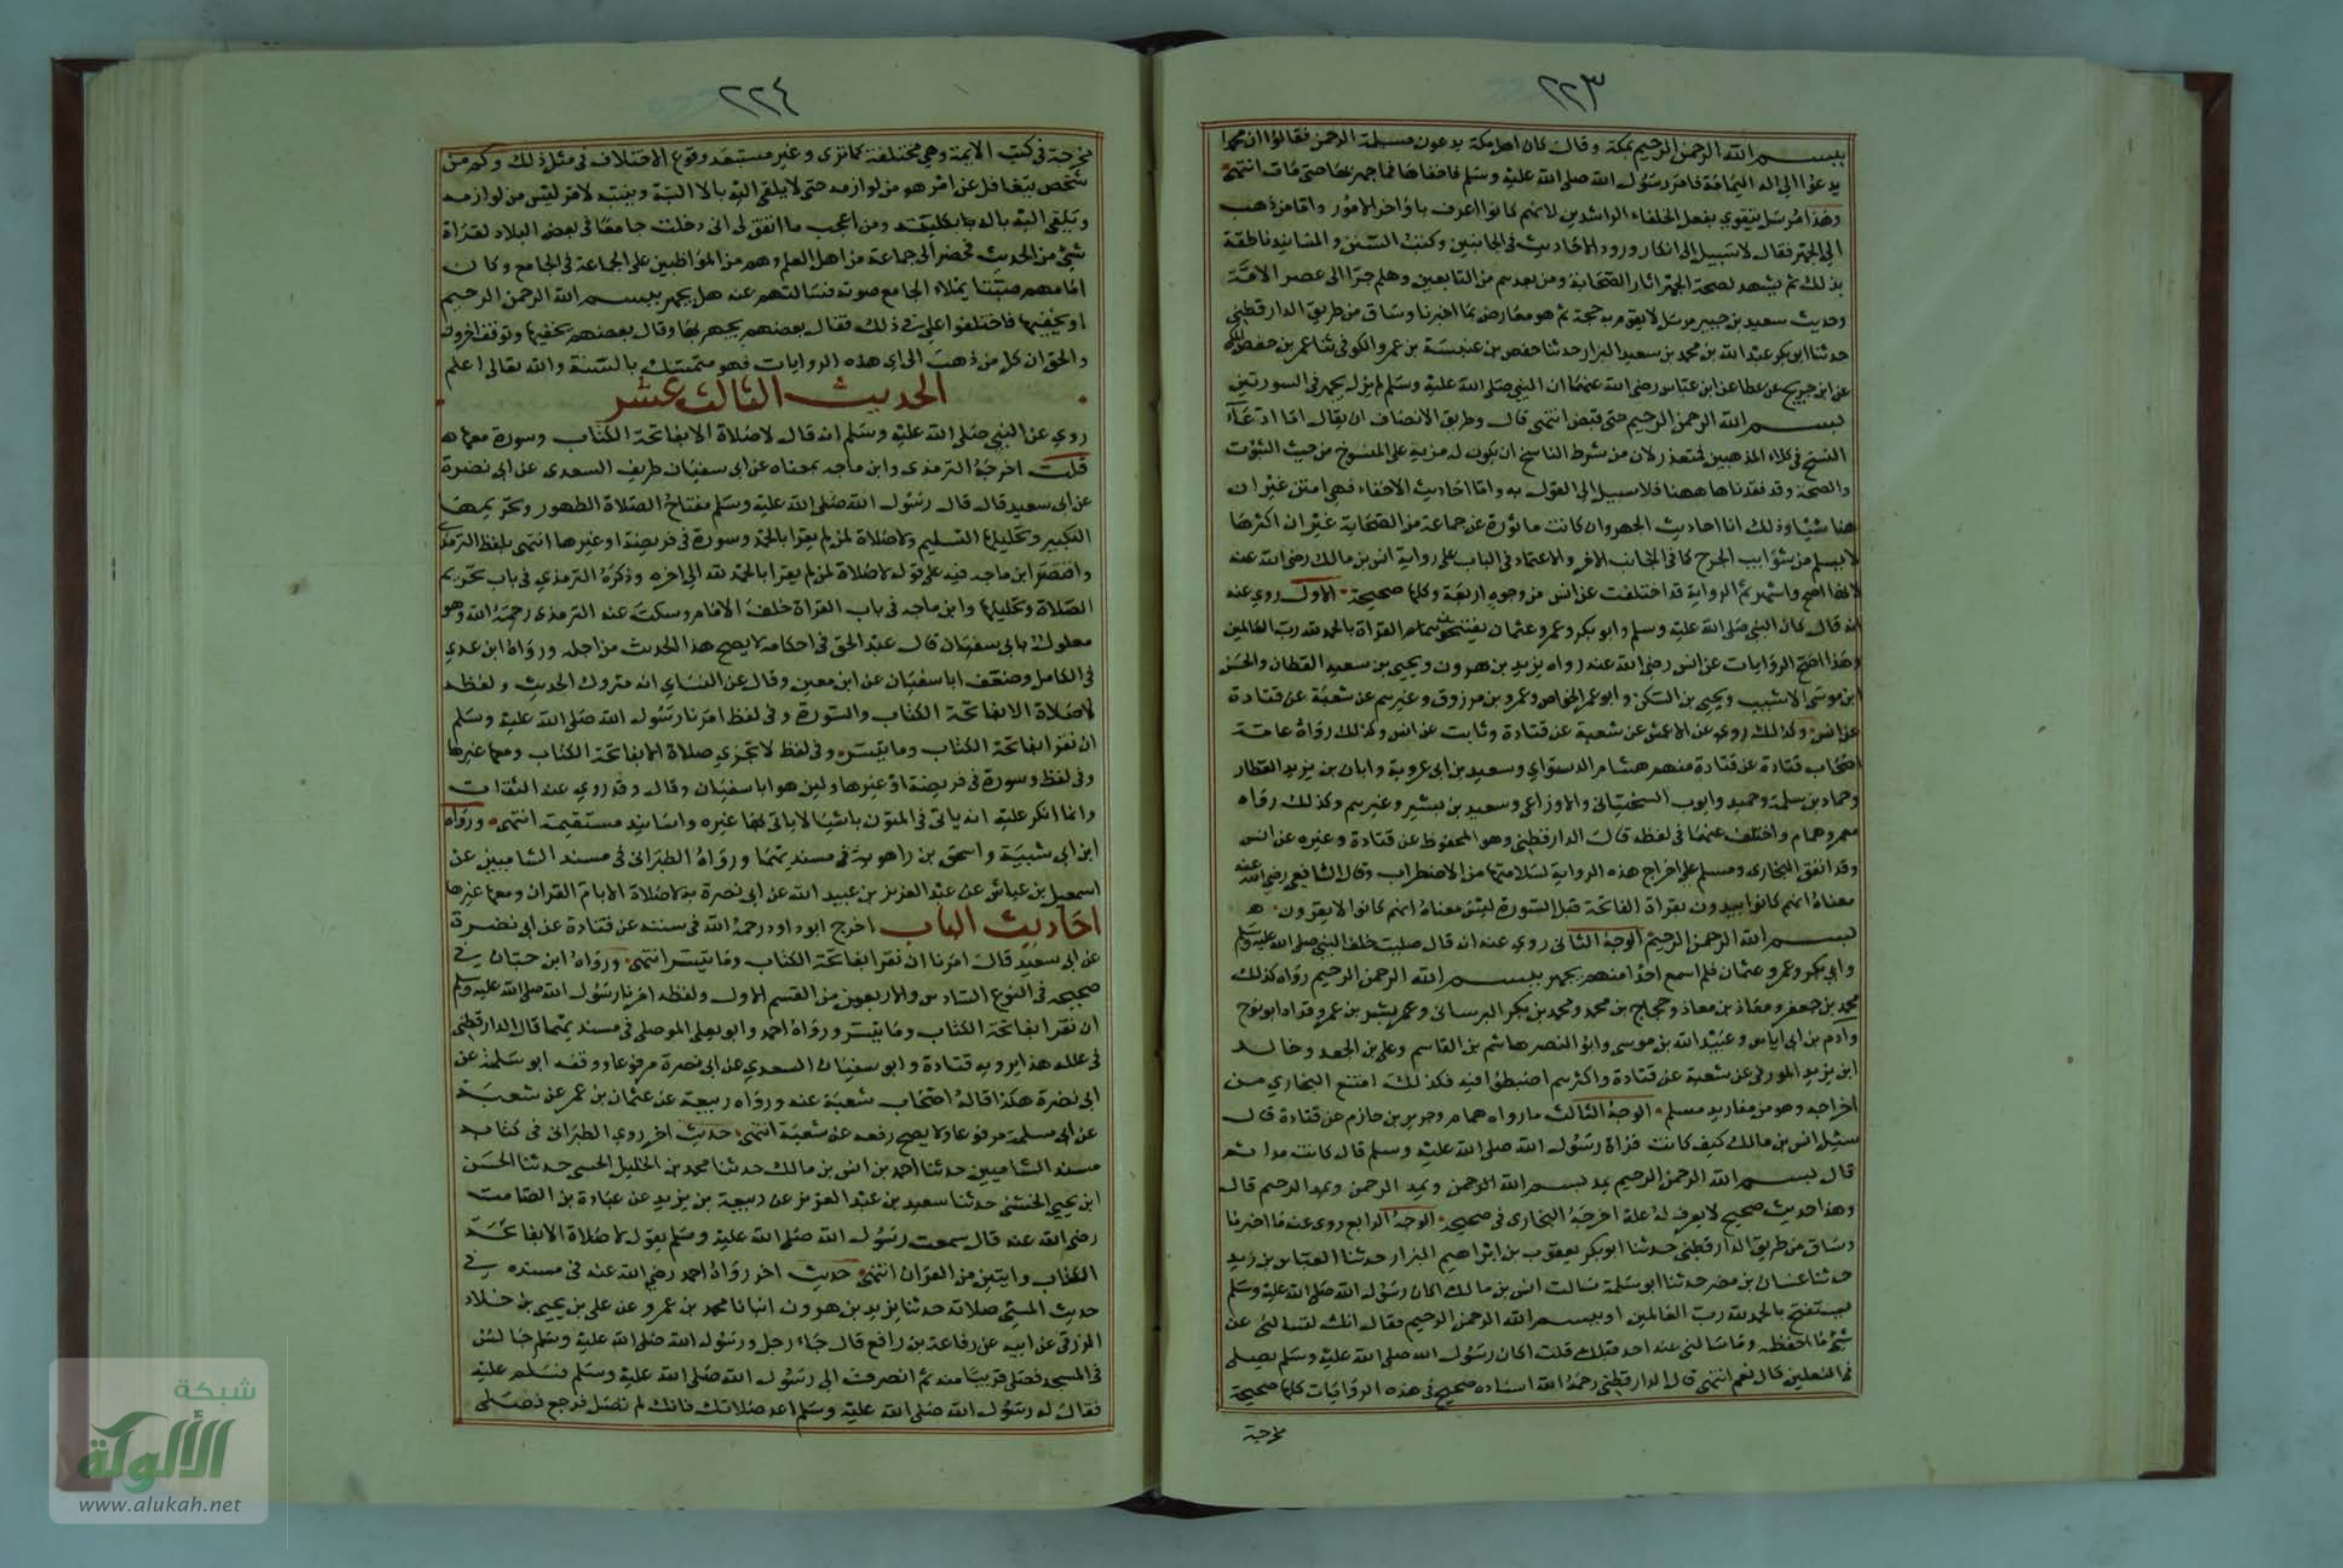 ٢٢٣
ببسم الله الرحمن الرحيم بمكة وقال كان اهل مكة يدعون مسيلمة الرحمن فقالوا ان محمدا
يدعوا الي اله اليمامة فامر رسول الله صلى الله عليه وسلم فاخفاها فما جهر بها حتى مات انتهى
وهذا مرسل يتقوي بفعل الخلفاء الراشدين لانهم كانوا اعرف باواخر الامور واما من ذهب
الي الجهر فقال لا سبيل الى انكار ورود الاحاديث في الجانبين وكتب السنن والمسانيد ناطقة
بذلك ثم يشهد لصحة الجهر اثار الصحابة ومن بعدهم من التابعين وهلم جرا الى عصر الامة
وحديث سعيد بن جبير مرسل لا يقوم به حجة ثم هو معارض بما اخبرنا وساق من طريق الدارقطني
حدثنا ابو بكر عبد الله بن محمد بن سعيد البزار حدثنا جعفر بن عنبسة بن عمرو الكوفي ثنا عمر بن حفص المكي
عن ابن جريج عن عطا عن ابن عباس رضى الله عنهما ان النبي صلى الله عليه وسلم لم يزل يجهر في السورتين
بسم الله الرحمن الرحيم حتى قبض انتهى قال وطريق الانصاف ان يقال اما ادعاء
النسخ في كلاء المذهبين فمتعذر لان من شرط الناسخ ان يكون له مزية على المنسوخ من حيث الثبوت
والصحة وقد فقدناها ههنا فلا سبيل الي القول به واما احاديث الاخفاء فهي امتن غير ان
هنا شيا وذلك ان احاديث الجهر وان كانت ماثورة عن جماعة من الصحابة غير ان اكثرها
لا يسلم من شوايب الجرح كما في الجانب الاخر والاعتماد في الباب على رواية انس بن مالك رضى الله عنه
لانها اصح واشهر ثم الرواية قد اختلفت عن انس من وجوه اربعة وكلها صحيحة الاول روي عنه
انه قال كان النبي صلى الله عليه وسلم وابو بكر وعمر وعثمان يفتتحون القراة بالحمد لله رب العالمين
وهذا اصح الروايات عن انس رضى الله عنه رواه يزيد بن هرون ويحيى بن سعيد القطان والحسن
ابن موسى الاشيب ويحيى بن السكن وابو عمر الحوضي وعمرو بن مرزوق وغيرهم عن شعبة عن قتادة
عن انس وكذلك روي عن الاعمش عن شعبة عن قتادة وثابت عن انس وكذلك رواه عامة
اصحاب قتادة عن قتادة منهم هشام الدستواي وسعيد بن ابى عروبة وابان بن يزيد العطار
وحماد بن سلمة وحميد وايوب السختياني والاوزاعي وسعيد بن بشير وغيرهم وكذلك رواه
معمر وهمام واختلف عنهما في لفظه قال الدارقطني وهو المحفوظ عن قتادة وغيره عن انس
وقد اتفق البخاري ومسلم على اخراج هذه الرواية لسلامتها من الاضطراب وقال الشافعي رضى الله عنه
معناه انهم كانوا يبدون بقراة الفاتحة قبل السورة ليس معناه انهم كانوا لا يقرون
بسم الله الرحمن الرحيم الوجه الثاني روي عنه انه قال صليت خلف النبي صلى الله عليه وسلم
وابي بكر وعمر وعثمان فلم اسمع احدا منهم يجهر ببسم الله الرحمن الرحيم رواه كذلك
محمد بن جعفر ومعاذ بن معاذ وحجاج بن محمد ومحمد بن بكر البرساني وبشر بن عمر وقراد ابو نوح
وادم بن ابى اياس وعبيد الله بن موسى وابو النضر هاشم بن القاسم وعلي بن الجعد وخالد
ابن يزيد المزرفي عن شعبة عن قتادة واكثرهم اضطربوا فيه فكذلك امتنع البخاري من
اخراجه وهو من مفاريد مسلم الوجه الثالث ما رواه همام وجرير بن حازم عن قتادة قال
سئل انس بن مالك كيف كانت قراة رسول الله صلى الله عليه وسلم قال كانت مدا ثم
قال بسم الله الرحمن الرحيم يمد بسم الله الرحمن ويمد الرحمن ويمد الرحيم قال
وهذا حديث صحيح لا يعرف له علة اخرجه البخاري في صحيحه الوجه الرابع روى عنه ما اخبرنا
وساق من طريق الدارقطني حدثنا ابو بكر يعقوب بن ابراهيم البزار حدثنا العباس بن يزيد
حدثنا غسان بن مضر حدثنا ابو سلمة سالت انس بن مالك اكان رسول الله صلى الله عليه وسلم
يستفتح بالحمد لله رب العالمين او ببسم الله الرحمن الرحيم فقال انك لتسالني عن
شئ ما احفظه وما سالني عنه احد قبلك قلت اكان رسول الله صلى الله عليه وسلم يصلى
في النعلين قال نعم انتهى قال الدارقطني رحمه الله اسناده صحيح فهذه الروايات كلها صحيحة
مخرجة
٢٢٤
مخرجة في كتب الايمة وهي مختلفة كما ترى وغير مستبعد وقوع الاختلاف في مثل ذلك وكم من
شخص يتغافل عن امر هو من لوازمه حتى لا يلقى اليه بالا البتة ويتنبه لامر ليس من لوازمه
ويلقى اليه باله بكليته ومن اعجب ما اتفق لى انى دخلت جامعا في بعض البلاد لقراة
شئ من الحديث فحضر الى جماعة من اهل العلم وهم من المواظبين على الجماعة في الجامع وكان
امامهم صيتا يملاء الجامع صوته فسالتهم عنه هل يجهر ببسم الله الرحمن الرحيم
او يخفيها فاختلفوا علي في ذلك فقال بعضهم يجهر بها وقال بعضهم يخفيها وتوقف اخرون
والحق ان كل من ذهب الى اي هذه الروايات فهو متمسك بالسنة والله تعالى اعلم
الحديث الثالث عشر
روي عن النبي صلى الله عليه وسلم انه قال لا صلاة الا بفاتحة الكتاب وسورة معها
قلت اخرجه الترمذى وابن ماجه بمعناه عن ابى سفيان طريف السعدى عن ابى نضرة
عن ابى سعيد قال قال رسول الله صلى الله عليه وسلم مفتاح الصلاة الطهور وتحريمها
التكبير وتحليلها التسليم ولا صلاة لمن لم يقرا بالحمد وسورة في فريضة او غيرها انتهى بلفظ الترمذى
واقتصر ابن ماجه فيه على قوله لا صلاة لمن لم يقرا بالحمد لله الى اخره وذكره الترمذي في باب تحريم
الصلاة وتحليلها وابن ماجه في باب القراة خلف الامام وسكت عنه الترمذى رحمه الله وهو
معلول بابي سفيان قال عبد الحق في احكامه لا يصح هذا الحديث من اجله ورواه ابن عدي
في الكامل وضعف ابا سفيان عن ابن معين وقال عن النساي انه متروك الحديث ولفظه
لا صلاة الا بفاتحة الكتاب والسورة وفي لفظ امرنا رسول الله صلى الله عليه وسلم
ان نقرا بفاتحة الكتاب وما تيسر وفي لفظ لا تجزي صلاة الا بفاتحة الكتاب ومعها غيرها
وفي لفظ وسورة في فريضة او غيرها ولين هو ابا سفيان وقال وقد روي عنه الثقات
وانما انكر عليه انه ياتى في المتون باشيا لا ياتى بها غيره واسانيده مستقيمة انتهى ورواه
ابن ابي شيبة واسحق بن راهويه في مسنديهما ورواه الطبراني في مسند الشاميين عن
اسمعيل بن عياش عن عبد العزيز بن عبيد الله عن ابي نضرة به لا صلاة الا بام القران ومعها غيرها
احاديث الباب اخرج ابو داود رحمه الله في سننه عن قتادة عن ابي نضرة
عن ابي سعيد قال امرنا ان نقرا بفاتحة الكتاب وما تيسر انتهى ورواه ابن حبان في
صحيحه في النوع السادس والاربعين من القسم الاول ولفظه امرنا رسول الله صلى الله عليه وسلم
ان نقرا بفاتحة الكتاب وما تيسر ورواه احمد وابو يعلى الموصلي في مسنديهما قال الدارقطني
في علله هذا يرويه قتادة وابو سفيان السعدي عن ابى نضرة مرفوعا ووقفه ابو سلمة عن
ابى نضرة هكذا قاله اصحاب شعبة عنه ورواه ربيعة عن عثمان بن عمر عن شعبة
عن ابى سلمة مرفوعا ولا يصح رفعه عن شعبة انتهى حديث اخر روي الطبراني في كتاب
مسند الشاميين حدثنا احمد بن انس بن مالك حدثنا محمد بن الخليل الخشنى حدثنا الحسن
ابن يحيى الخشني حدثنا سعيد بن عبد العزيز عن ربيعة بن يزيد عن عبادة بن الصامت
رضى الله عنه قال سمعت رسول الله صلى الله عليه وسلم يقول لا صلاة الا بفاتحة
الكتاب وايتين من القران انتهى حديث اخر رواه احمد رضي الله عنه في مسنده في
حديث المسئ صلاته حدثنا يزيد بن هرون انبانا محمد بن عمرو عن علي بن يحيى بن خلاد
الزرقي عن ابيه عن رفاعة بن رافع قال جاء رجل ورسول الله صلى الله عليه وسلم جالس
في المسجد فصلى قريبا منه ثم انصرف الى رسول الله صلى الله عليه وسلم فسلم عليه
فقال له رسول الله صلى الله عليه وسلم اعد صلاتك فانك لم تصل فرجع فصلى
شبكة
الألوكة
www.alukah.net